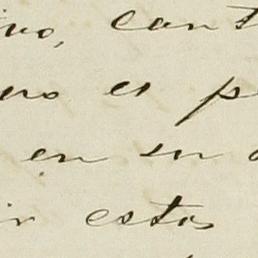 ivo, cant
ero es p
en su
ir estos